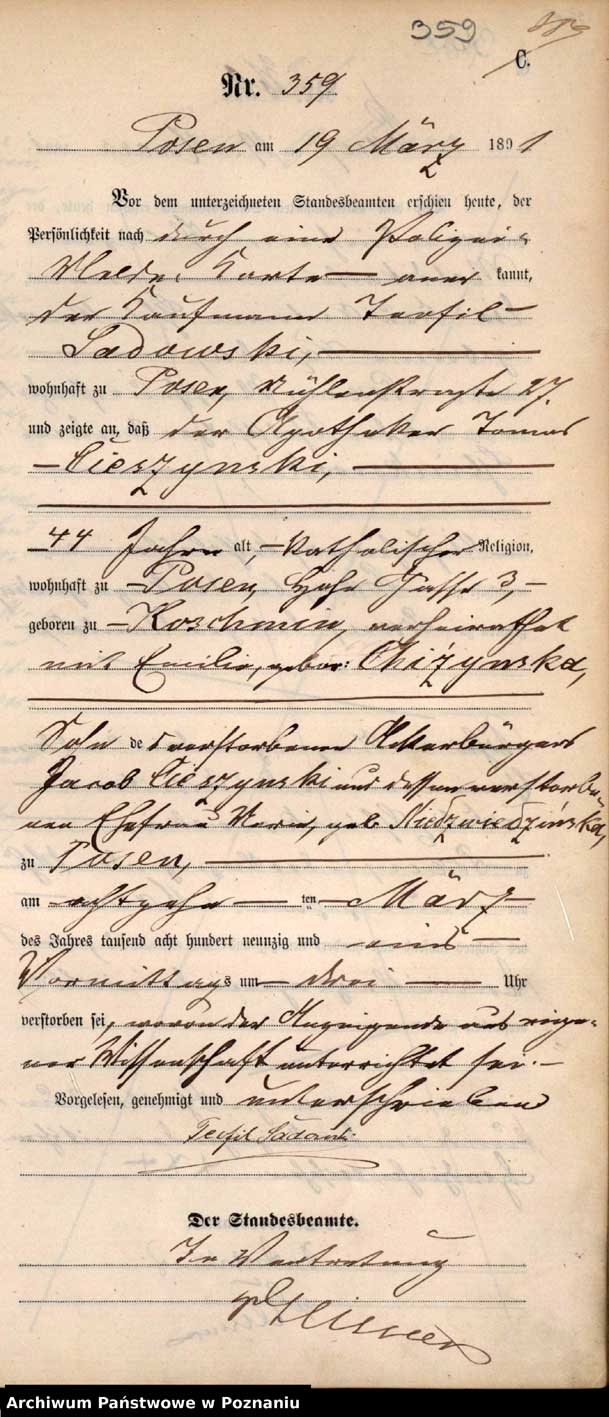 359
C.
Nr. 359.
Posen am 19 März 1891
Vor dem unterzeichneten Standesbeamten erschien heute, der
Persönlichkeit nach durch eine Polizei-
Melde-Karte aner kannt,
der Kaufmann Teofil
Sadowski,
wohnhaft zu Posen, Mühlenstraße 27.
und zeigte an, daß der Apotheker Tomas
Cieszynski,
44 Jahre alt, katholischer Religion,
wohnhaft zu Posen, Hohe Gasse 3,
geboren zu Koschmin, verheirathet
mit Emilie, gebor: Chiżynska,
Sohn des verstorbenen Ackerbürgers
Jacob Cieszynski und dessen verstorbe-
nen Ehefrau Maria, geb. Niedzwiedzińska,
zu Posen,
am achtzehn ten März
des Jahres tausend acht hundert neunzig und eins
Vormittags um drei Uhr
verstorben sei, wovon der Anzeigende aus eige-
ner Wissenschaft unterrichtet sei.
Vorgelesen, genehmigt und unterschrieben
Teofil Sadowski
Der Standesbeamte.
In Vertretung
Archiwum Państwowe w Poznaniu